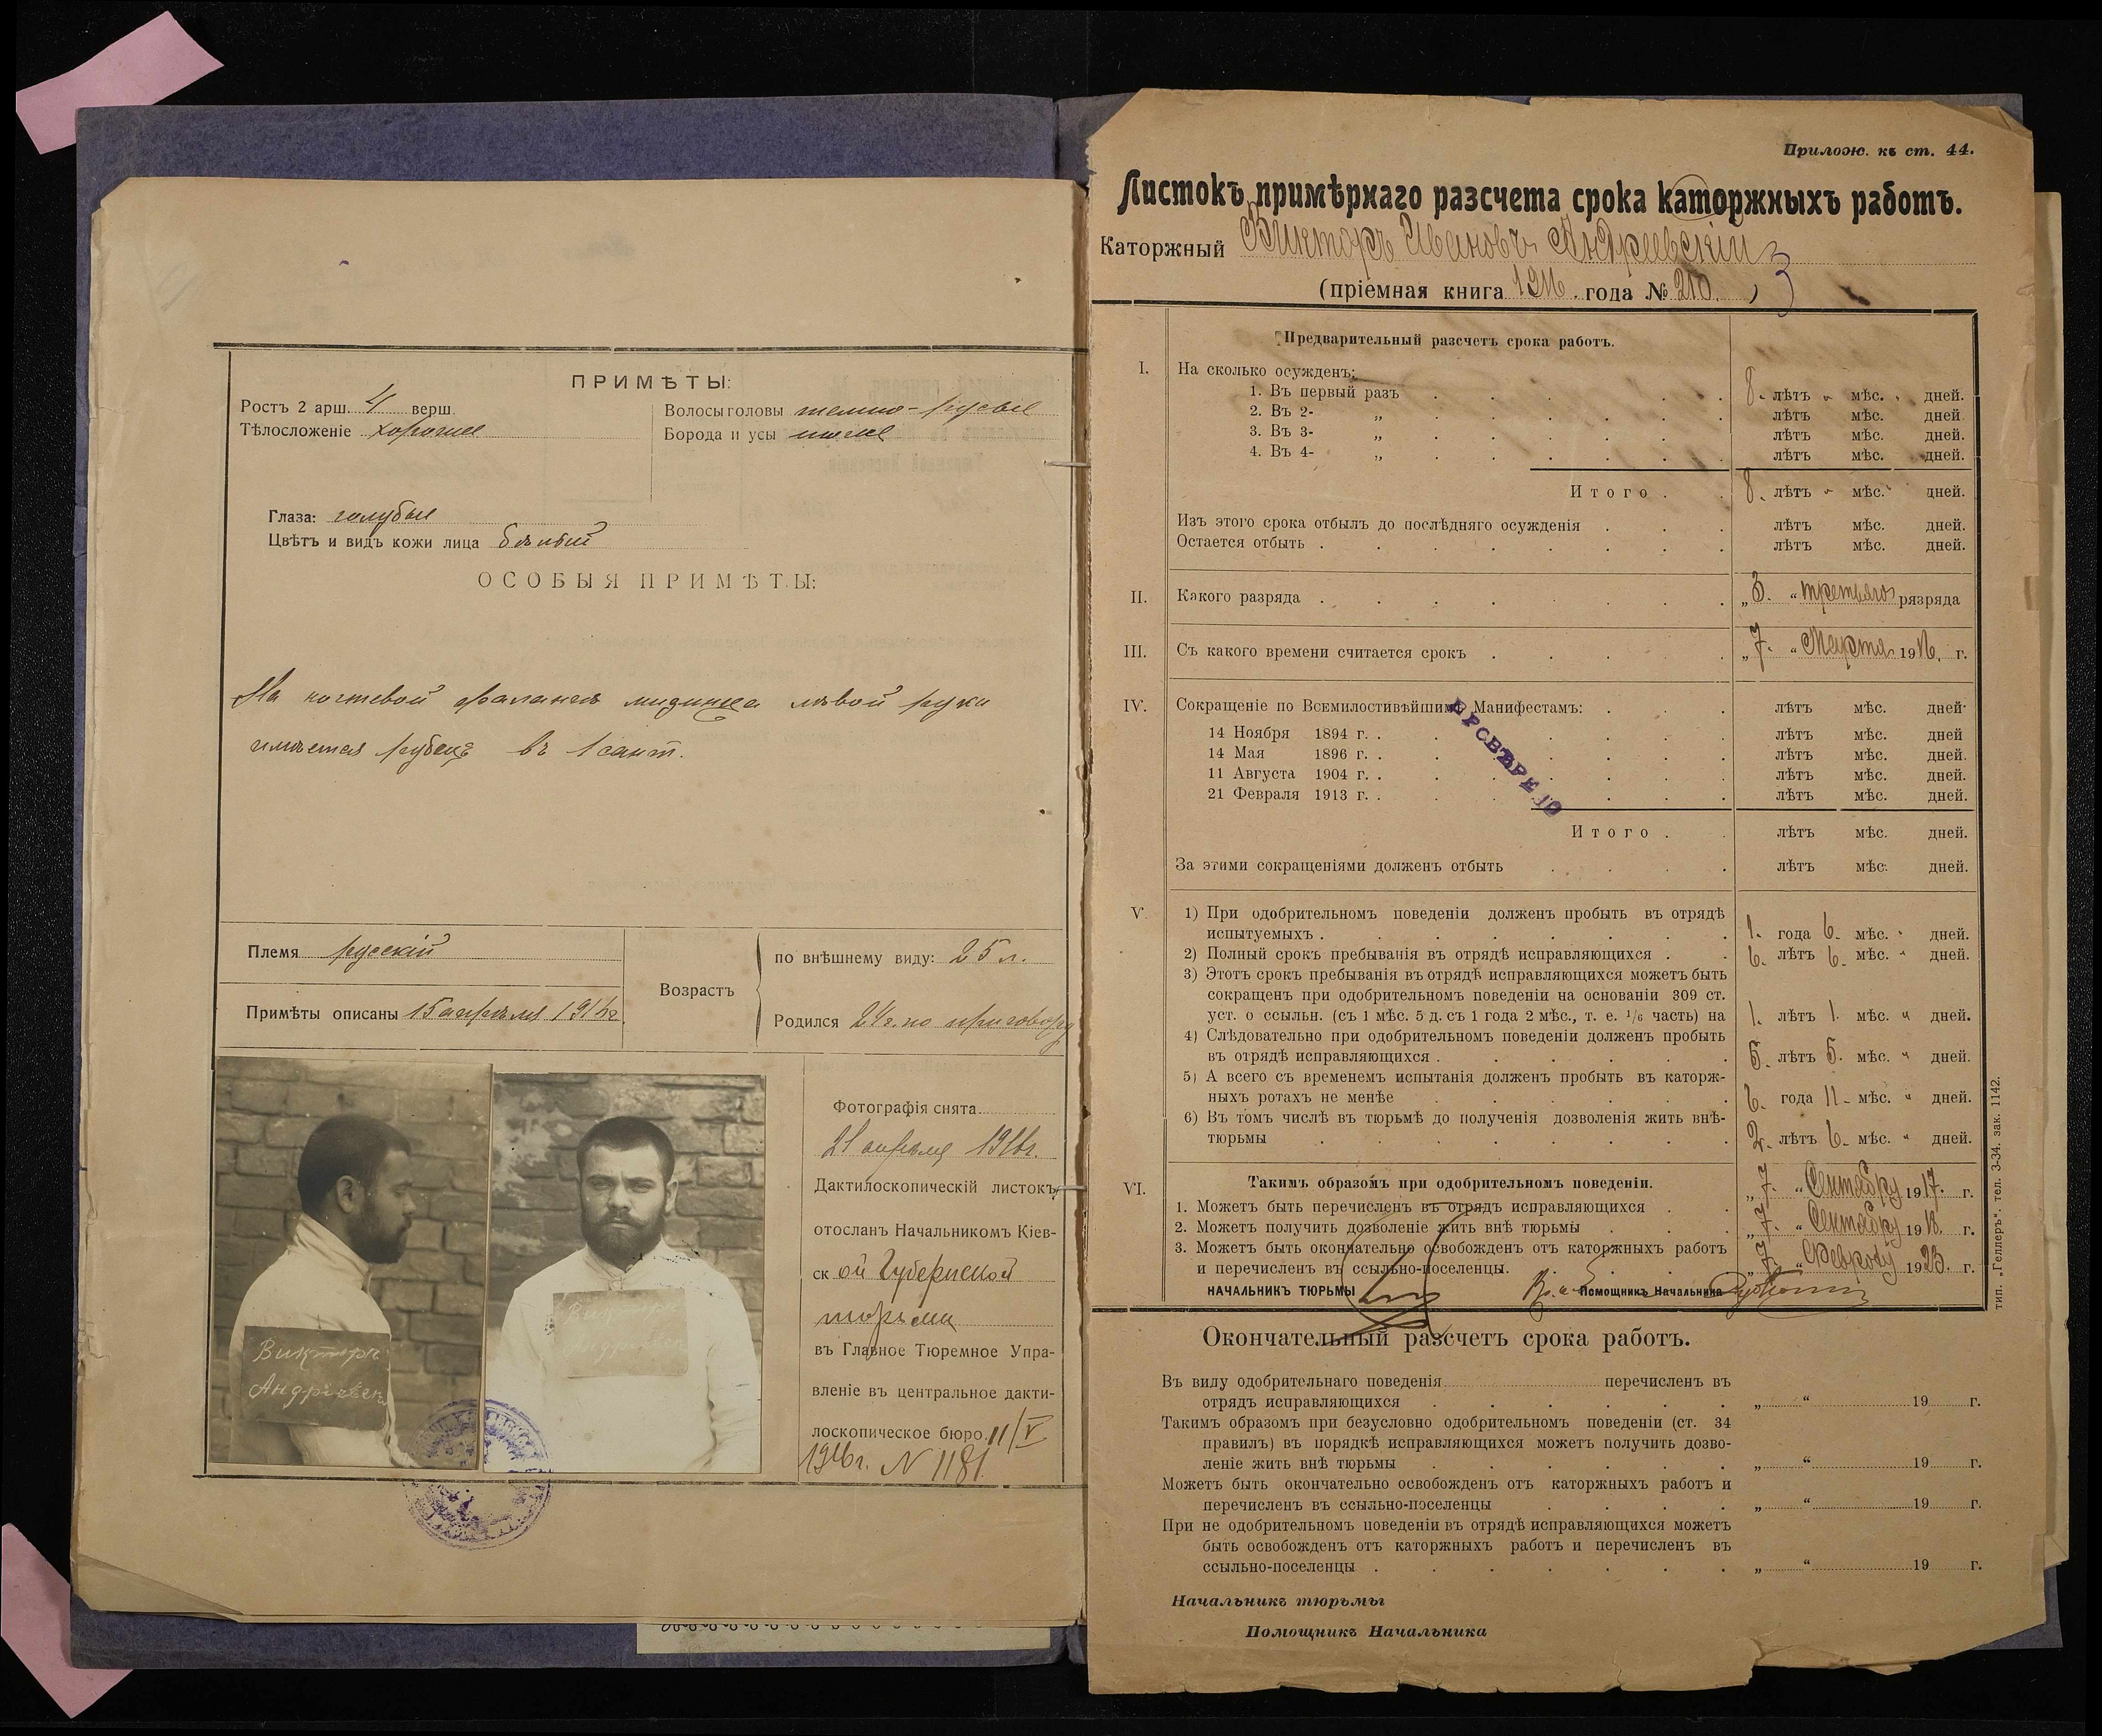 ПРИМѢТЫ:
Ростъ 2 арш. 4 верш.
Тѣлосложеніе хорошее
Волосы головы темно-русые
Борода и усы
Глаза: голубые
Цвѣтъ и видъ кожи лица бѣлый
ОСОБЫЯ ПРИМѢТЫ:
На ногтевой фалангѣ мизинца лѣвой руки
имѣется рубецъ въ 1 сант.
Племя русскій
Примѣты описаны 15 апрѣля 1916 г.
Возрастъ
по внѣшнему виду: 25 л.
Родился 24 г. по приговору
Фотографія снята
21 апрѣля 1916г.
Дактилоскопическій листокъ
отосланъ Начальникомъ Кіев-
ской Губернской
тюрьмы
въ Главное Тюремное Упра-
вленіе въ центральное дакти-
лоскопическое бюро 11/V
1916г. N 1181.
Викторъ
Андріевск
Прилож. къ ст. 44.
Листокъ примѣрнаго разсчета срока каторжныхъ работъ.
Каторжный Викторъ Ивановъ Андреевскій
3
(пріемная книга 1916 года № 210. )
Предварительный разсчетъ срока работъ.
I. На сколько осужденъ:
1. Въ первый разъ 8. лѣтъ " мѣс. " дней.
2. Въ 2- „ лѣтъ мѣс. дней.
3. Въ 3- „ лѣтъ мѣс. дней.
4. Въ 4- „ лѣтъ мѣс. дней.
Итого . 8. лѣтъ " мѣс. " дней.
Изъ этого срока отбылъ до послѣдняго осужденія лѣтъ мѣс. дней.
Остается отбыть . лѣтъ мѣс. дней.
II. Какого разряда . „3. “ третьяго рязряда
III. Съ какого времени считается срокъ . „7. “ Марта 1916. г.
IV. Сокращеніе по Всемилостивѣйшимъ Манифестамъ: лѣтъ мѣс. дней.
14 Ноября 1894 г. . лѣтъ мѣс. дней
14 Мая 1896 г. . лѣтъ мѣс. дней.
11 Августа 1904 г. . лѣтъ мѣс. дней.
21 Февраля 1913 г. . лѣтъ мѣс. дней.
Итого . лѣтъ мѣс. дней.
За этими сокращеніями долженъ отбыть лѣтъ мѣс. дней.
V. 1) При одобрительномъ поведеніи долженъ пробыть въ отрядѣ
испытуемыхъ . 1. года 6. мѣс. " дней.
2) Полный срокъ пребыванія въ отрядѣ исправляющихся . 6. лѣтъ 6. мѣс. " дней.
3) Этотъ срокъ пребыванія въ отрядѣ исправляющихся можетъ быть
сокращенъ при одобрительномъ поведеніи на основаніи 309 ст.
уст. о ссыльн. (съ 1 мѣс. 5 д. съ 1 года 2 мѣс., т. е. 1/6 часть) на 1. лѣтъ 1. мѣс. " дней.
4) Слѣдовательно при одобрительномъ поведеніи долженъ пробыть
въ отрядѣ исправляющихся . 5. лѣтъ 5. мѣс. " дней.
5) А всего съ временемъ испытанія долженъ пробыть въ каторж-
ныхъ ротахъ не менѣе 6. года 11 - мѣс. " дней.
6) Въ томъ числѣ въ тюрьмѣ до полученія дозволенія жить внѣ-
тюрьмы 2. лѣтъ 6 - мѣс. " дней.
VI. Такимъ образомъ при одобрительномъ поведеніи.
1. Можетъ быть перечисленъ въ отрядъ исправляющихся „7. “ Сентября 1917. г.
2. Можетъ получить дозволеніе жить внѣ тюрьмы „7. “ Сентября 1918. г.
3. Можетъ быть окончательно освобожденъ отъ каторжныхъ работъ
и перечисленъ въ ссыльно-поселенцы. „7. “ Февраля 1923. г.
НАЧАЛЬНИКЪ ТЮРЬМЫ Помощникъ Начальника
Окончательный разсчетъ срока работъ.
Въ виду одобрительнаго поведенія перечисленъ въ
отрядъ исправляющихся „ “ 19 г.
Такимъ образомъ при безусловно одобрительномъ поведеніи (ст. 34
правилъ) въ порядкѣ исправляющихся можетъ получить дозво-
леніе жить внѣ тюрьмы „ “ 19 г.
Можетъ быть окончательно освобожденъ отъ каторжныхъ работъ и
перечисленъ въ ссыльно-поселенцы „ “ 19 г.
При не одобрительномъ поведеніи въ отрядѣ исправляющихся можетъ
быть освобожденъ отъ каторжныхъ работъ и перечисленъ въ
ссыльно-поселенцы . „ “ 19 г.
Начальникъ тюрьмы
Помощникъ Начальника
тип. „Геллеръ“. тел. 3-34. зак. 1142.